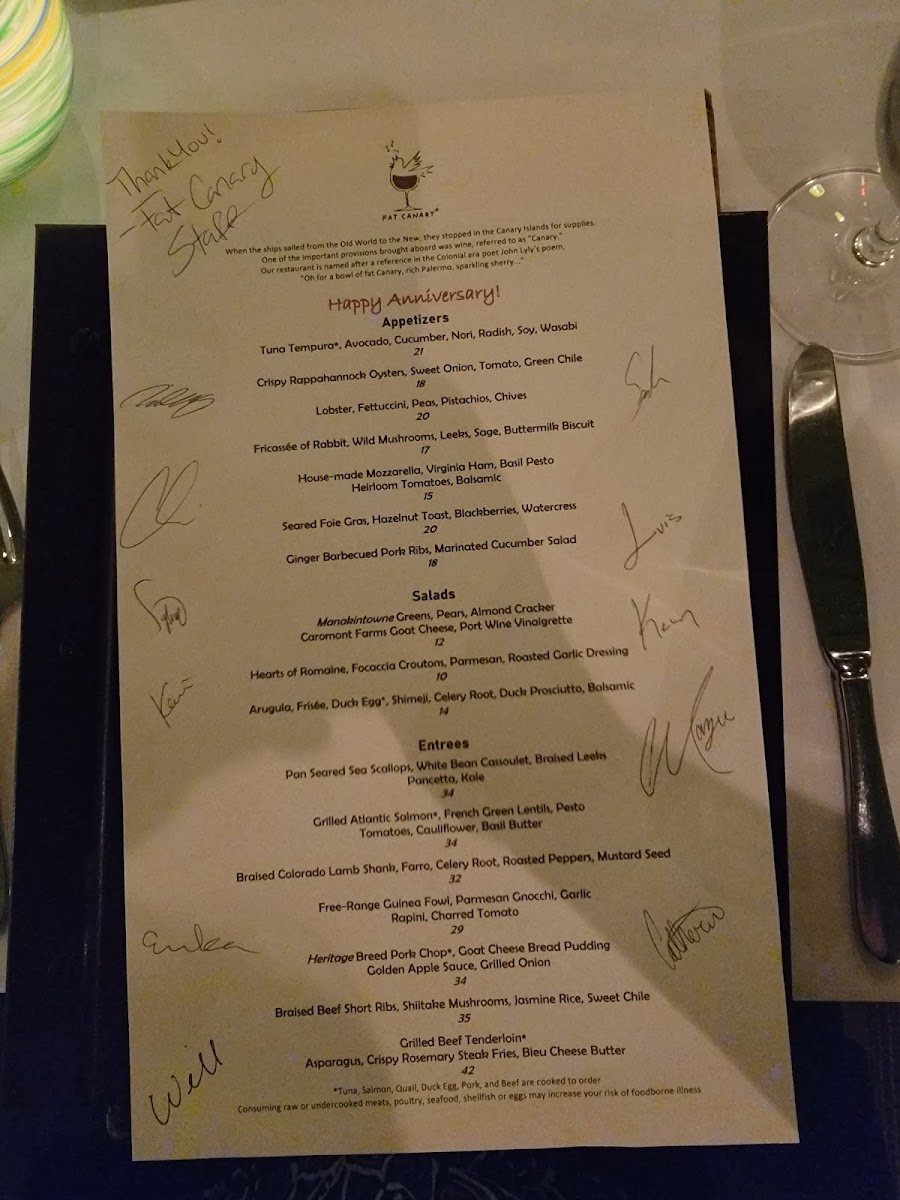 Thank You!
- Fat Canary
Staff
FAT CANARY®
When the ships sailed from the Old World to the New, they stopped in the Canary Islands for supplies.
One of the important provisions brought aboard was wine, referred to as "Canary."
Our restaurant is named after a reference in the Colonial era poet John Lyly's poem,
"Oh for a bowl of fat Canary, rich Palermo, sparkling sherry..."
Happy Anniversary!
Appetizers
Tuna Tempura*, Avocado, Cucumber, Nori, Radish, Soy, Wasabi
21
Crispy Rappahannock Oysters, Sweet Onion, Tomato, Green Chile
18
Lobster, Fettuccini, Peas, Pistachios, Chives
20
Fricassée of Rabbit, Wild Mushrooms, Leeks, Sage, Buttermilk Biscuit
17
House-made Mozzarella, Virginia Ham, Basil Pesto
Heirloom Tomatoes, Balsamic
15
Seared Foie Gras, Hazelnut Toast, Blackberries, Watercress
20
Luis
Ginger Barbecued Pork Ribs, Marinated Cucumber Salad
18
Salads
Manakintowne Greens, Pears, Almond Cracker
Caromont Farms Goat Cheese, Port Wine Vinaigrette
12
Hearts of Romaine, Focaccia Croutons, Parmesan, Roasted Garlic Dressing
10
Arugula, Frisée, Duck Egg*, Shimeji, Celery Root, Duck Prosciutto, Balsamic
14
Entrees
Pan Seared Sea Scallops, White Bean Cassoulet, Braised Leeks
Pancetta, Kale
34
Grilled Atlantic Salmon*, French Green Lentils, Pesto
Tomatoes, Cauliflower, Basil Butter
34
Braised Colorado Lamb Shank, Farro, Celery Root, Roasted Peppers, Mustard Seed
32
Free-Range Guinea Fowl, Parmesan Gnocchi, Garlic
Rapini, Charred Tomato
29
Heritage Breed Pork Chop*, Goat Cheese Bread Pudding
Golden Apple Sauce, Grilled Onion
34
Braised Beef Short Ribs, Shiitake Mushrooms, Jasmine Rice, Sweet Chile
35
Grilled Beef Tenderloin*
Asparagus, Crispy Rosemary Steak Fries, Bleu Cheese Butter
42
*Tuna, Salmon, Quail, Duck Egg, Pork, and Beef are cooked to order
Consuming raw or undercooked meats, poultry, seafood, shellfish or eggs may increase your risk of foodborne illness